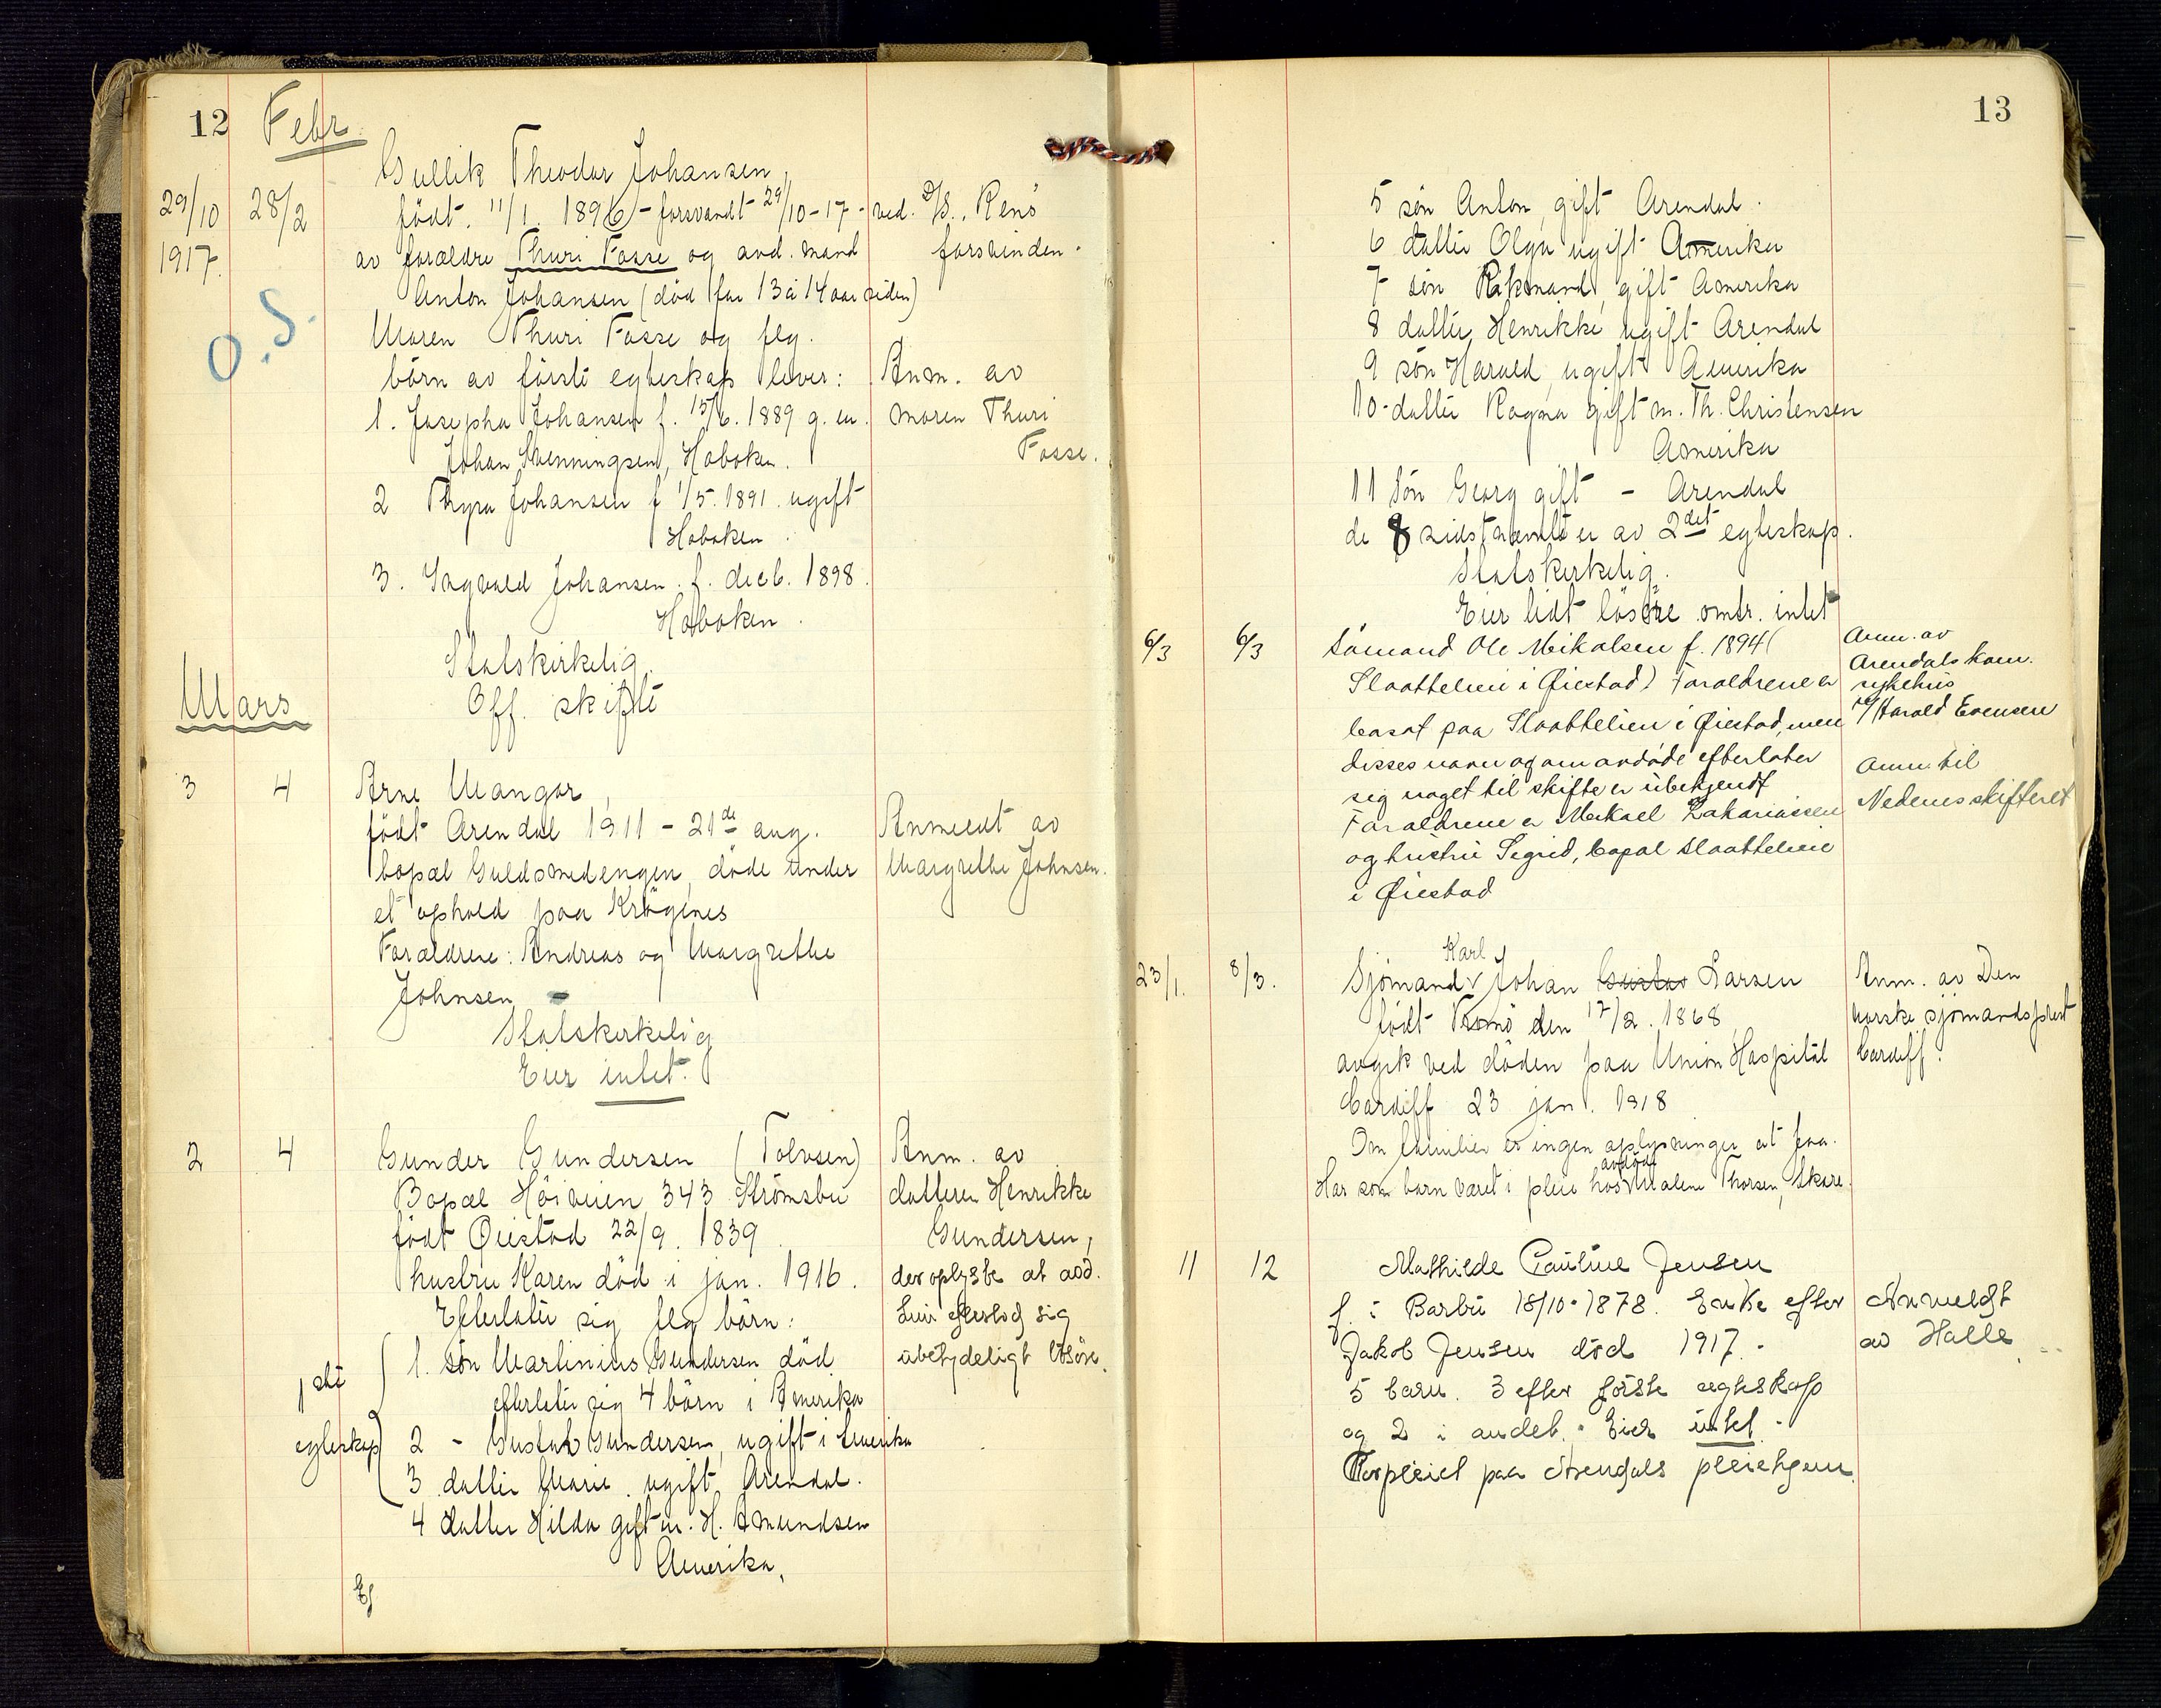 12 Febr.
Gullik Theodor Johansen,
29/10 28/2 födt. 11/1. 1896 - forsvandt 29/10-17 - ved. D/S. Renö
1917. av forældre Thuri Fosse og avd. mand forsvinden.
Anton Johansen (död for 13 à 14 aar siden)
O.S.
Moren Thuri Fosse og flg.
börn av förste egteskap lever: Anm. av
1. Josepha Johansen f. 15/6. 1889 g. m. moren Thuri
Johan Henningsen, Hoboken. Fosse.
2 Thyra Johansen f 1/5. 1891. ugift
Hoboken.
3. Sagvald Johansen. f. decb. 1898.
Hoboken.
Statskirkelig.
Off. skifte
Mars
3 4 Arne Mangor,
födt Arendal 1911 - 21de aug. Anmeldt av
bopæl Guldsmedengen, döde under Margrethe Johnsen.
et ophold paa Krögenes
Forældrene: Andreas og Margrethe
Johnsen
Statskirkelig
Eier intet.
2 4 Gunder Gundersen (Tolvsen) Anm. av
Bopæl Höiveien 343 Strömsbu datteren Henrikke
födt Öiestad 22/9. 1839 Gundersen,
hustru Karen död i jan. 1916. der oplyste at avd.
Efterlater sig flg börn: kun efterlod sig
1. sön Martinius Gundersen död ubetydeligt lösöre.
1ste
efterlater sig 4 börn i Amerika
egteskap 2 - Gustav Gundersen, ugift i Amerika
3 datter Marie ugift Arendal.
4 datter Hilda gift m. H. Amundsen
Amerika.
13
5 sön Anton, gift Arendal.
6 datter Olga ugift Amerika
7 sön Rikmand, gift Amerika
8 datter Henrikke ugift Arendal
9 sön Harald, ugift Amerika
10 - datter Ragna gift m. Th. Christensen
Amerika
11 Sön Georg gift - Arendal
de 8 sidstnævnte er av 2det egteskap.
Statskirkelig.
Eier lidt lösöre omtr. intet
6/3 6/3 Sömand Ole Mikalsen f. 1894 ( Anm. av
Slaattelien i Øiestad) Forældrene er Arendals kom. sykehus
bosat paa Slaattelien i Øiestad, men v/Harald Evensen
disses navn og om avdöde efterlater Anm. til
sig noget til skifte er ubekjendt Nedenes skifteret
Forældrene er Mikael Zakariassen
og hustru Sigrid, bopæl Slaattelien
i Øiestad
23/1. 8/3. Sjömand Karl Johan Gustav Larsen Anm. av Den
födt Tromö den 17/2. 1868 norske sjömandsprest
avgik ved döden paa Union Hospital Cardiff.
Cardiff 23 jan. 1918
Om familien er ingen oplysninger at faa.
Har som barn været i pleie hos avdöde Malene Thorsen, Skare.
11 12 Mathilde Pauline Jensen
f. i Barbu 18/10-1878. Enke efter Anmeldt
Jakob Jensen död 1917. av Halle
5 barn. 3 efter förste ægteskap
og 2 i andet. Eier intet.
Forpleiet paa Arendals pleiehjem.